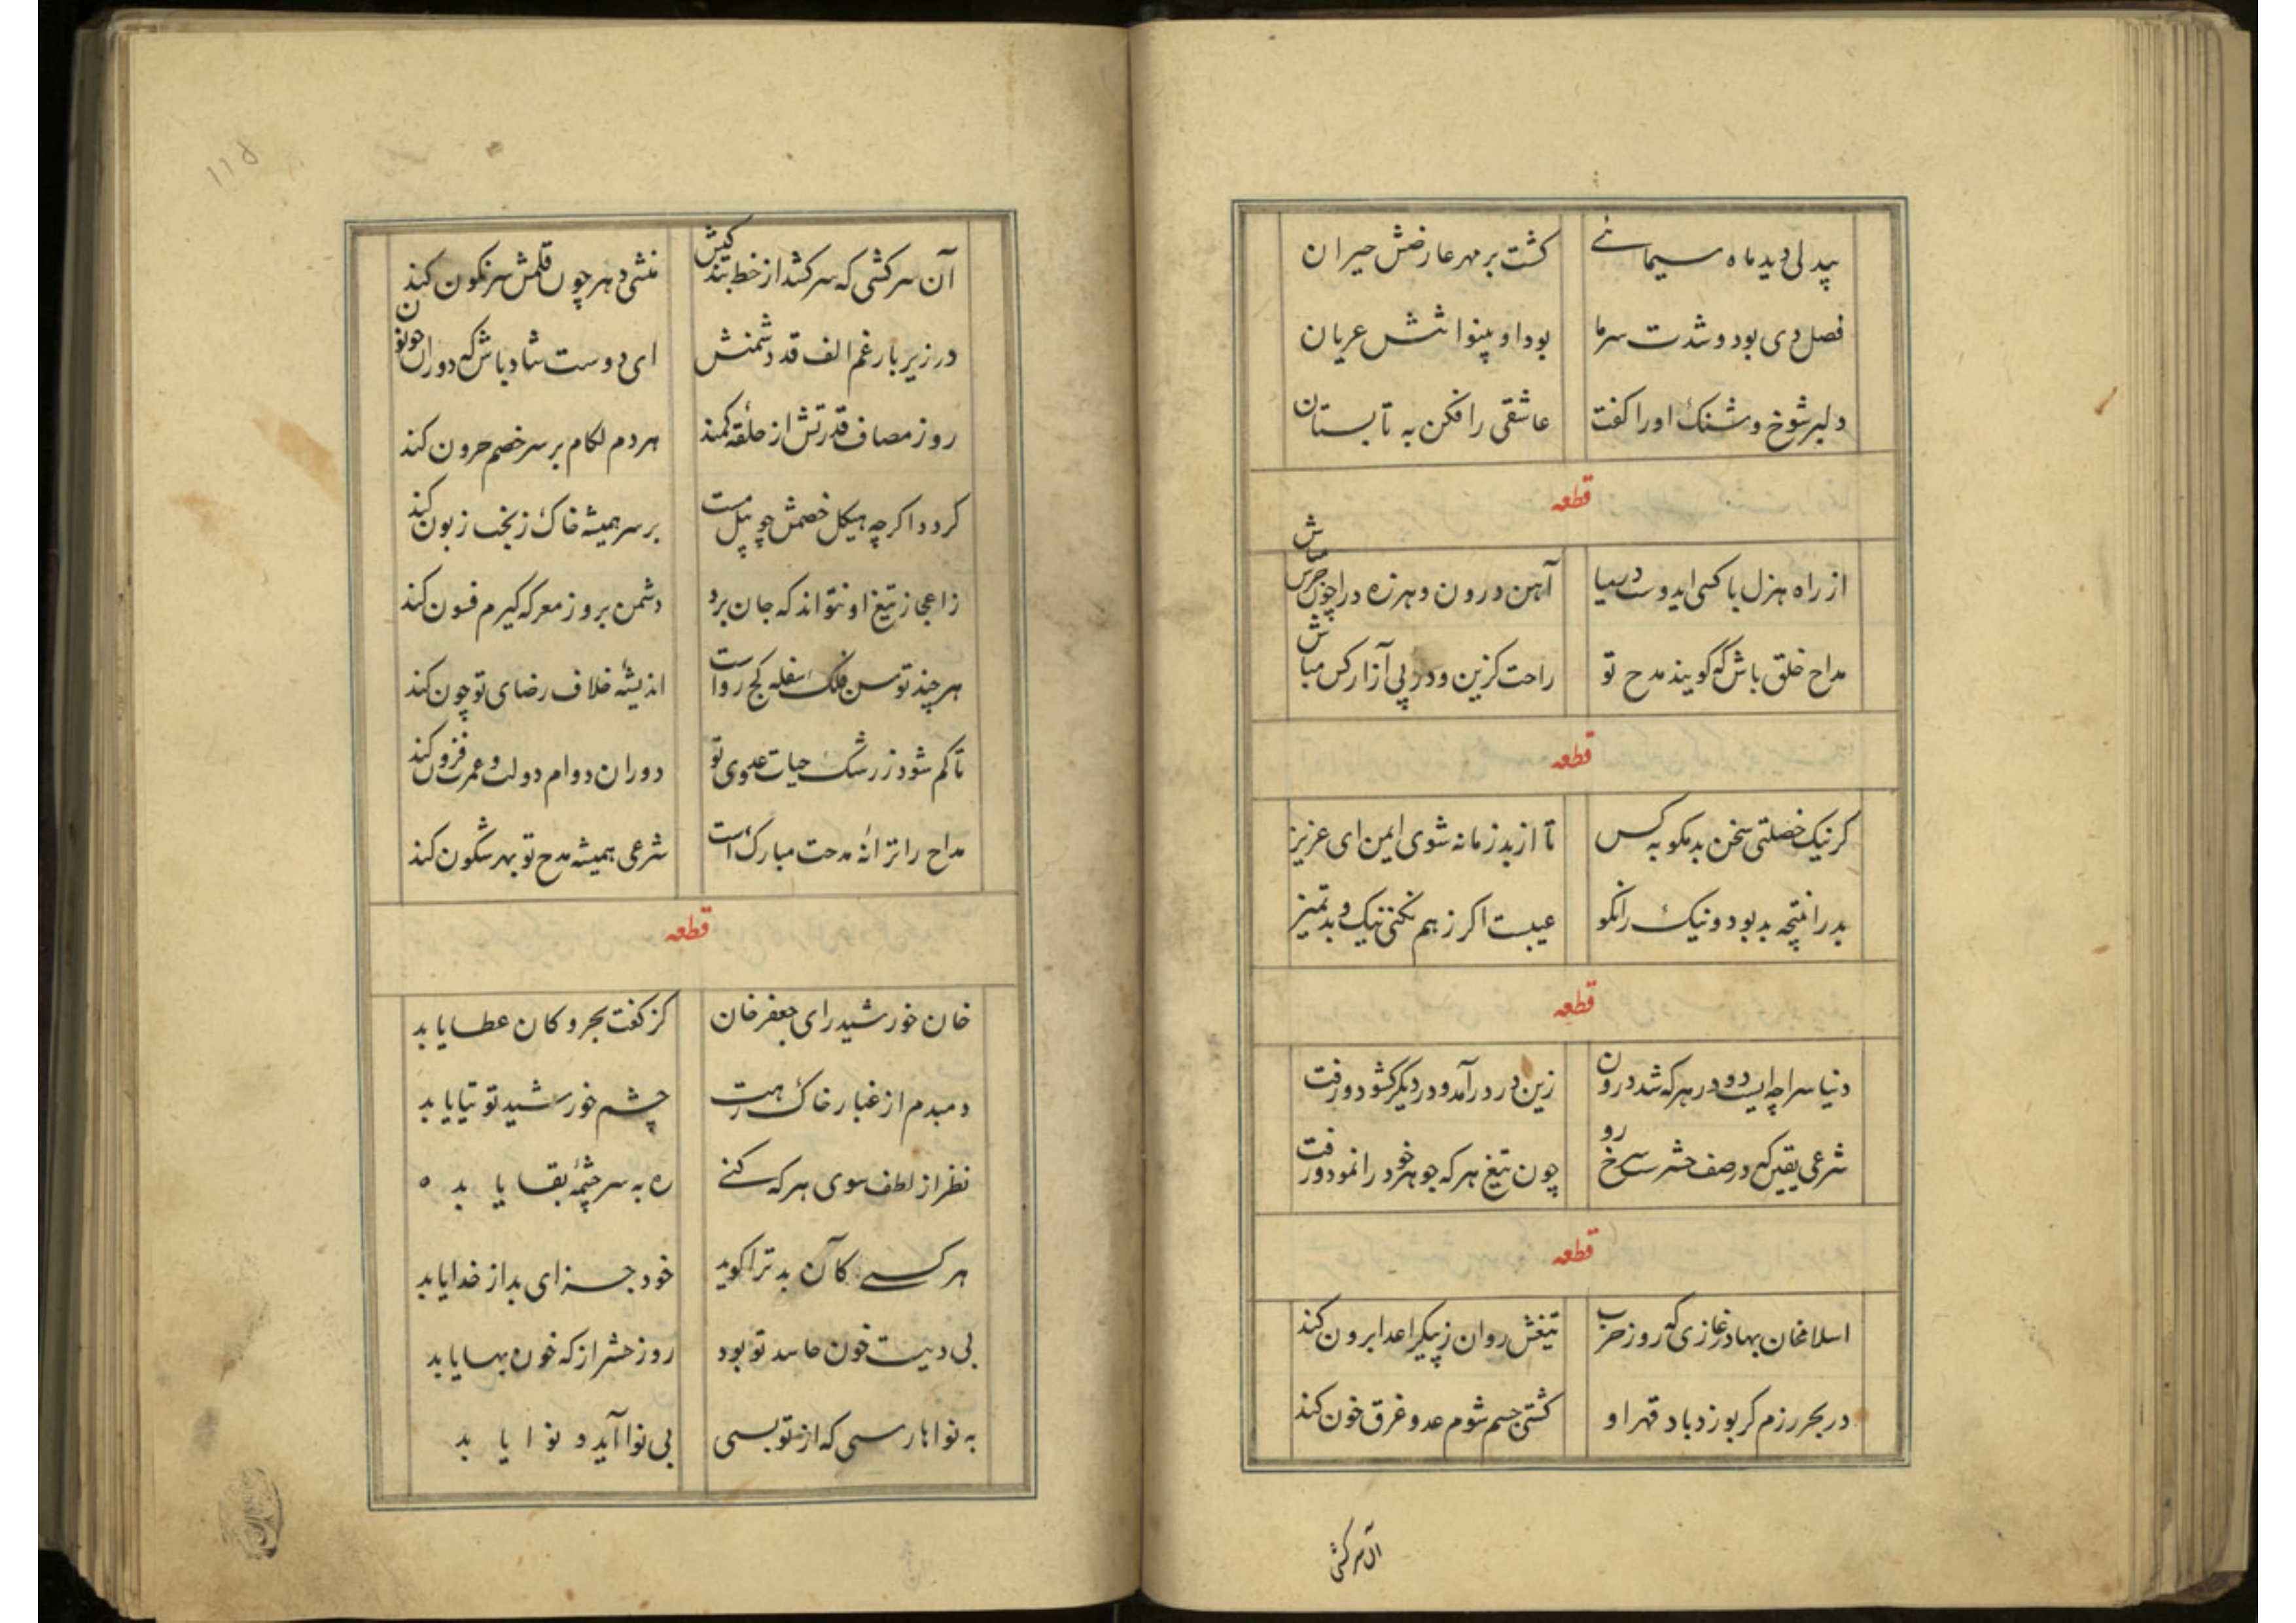 بیدلی دید ماه سیمائے گشت بر مهر عارضش حیران
فصل دی بود و شدت سرما بود او بینوا تنش عریان
دلبر شوخ و شنک او را گفت عاشقی را فکن به تابستان
قطعه
از راه هزل با کسی ایدوست در میا آهن درون و هرزه درا چون جرس مباش
مداح خلق باش که گویند مدح تو راحت کزین و در پی آزار کس مباش
قطعه
کر نیک خصلتی سخن بد مکو به کس تا از بد زمانه شوی ایمن ای عزیز
بد را نتیجه بد بود و نیک را نکو عیبست اکر ز هم نکنی نیک و بد تمیز
قطعه
دنیا سراچه ایست دو در هر که شد درون زین در درآمد و در دیگر کشود و رفت
شرعی یقین که در صف حشر سرخ رو چون تیغ هر که جوهر خود را نمود و رفت
قطعه
اسلامخان بهادر غازی که روز حرب تیغش روان ز پیکر اعدا برون کند
در بحر رزم کر بوزد باد قهر او کشتی جسم شوم عدو غرق خون کند
آن سرکشی
۱۱۵
آن سرکشی که سر کشد از خط بندکیش منشی دهر چون قلمش سرنکون کند
در زیر بار غم الف قد دشمنش ای دوست شاد باش که دوران چو نون کند
روز مصاف قدرتش از حلقه کمند هر دم لکام بر سر خصم حرون کند
کردد اکرچه هیکل خصمش چو پیل مست بر سر همیشه خاک ز بخت زبون کند
ز اعجاز تیغ او نتواند که جان برد دشمن بروز معرکه کیرم فسون کند
هر چند توسن فلک سفله کج رواست اندیشه خلاف رضای تو چون کند
تا کم شود ز رشک حیات عدوی تو دوران دوام دولت و عمرت فزون کند
مداح را ترانه مدحت مبارک است شرعی همیشه مدح تو بهر شکون کند
قطعه
خان خورشید رای جعفر خان کز کفت بحر و کان عطا یابد
دمبدم از غبار خاک رهت چشم خورشید توتیا یابد
نظر از لطف سوی هر که کنے ره به سرچشمه بقا یابد ه
هر کسے کان بد ترا کوید خود جزای بد از خدا یابد
بی دیت خون حاسد تو بود روز حشر از که خون بها یابد
به نواها رسی که از تو بسی بی نوا آید و نوا یابد